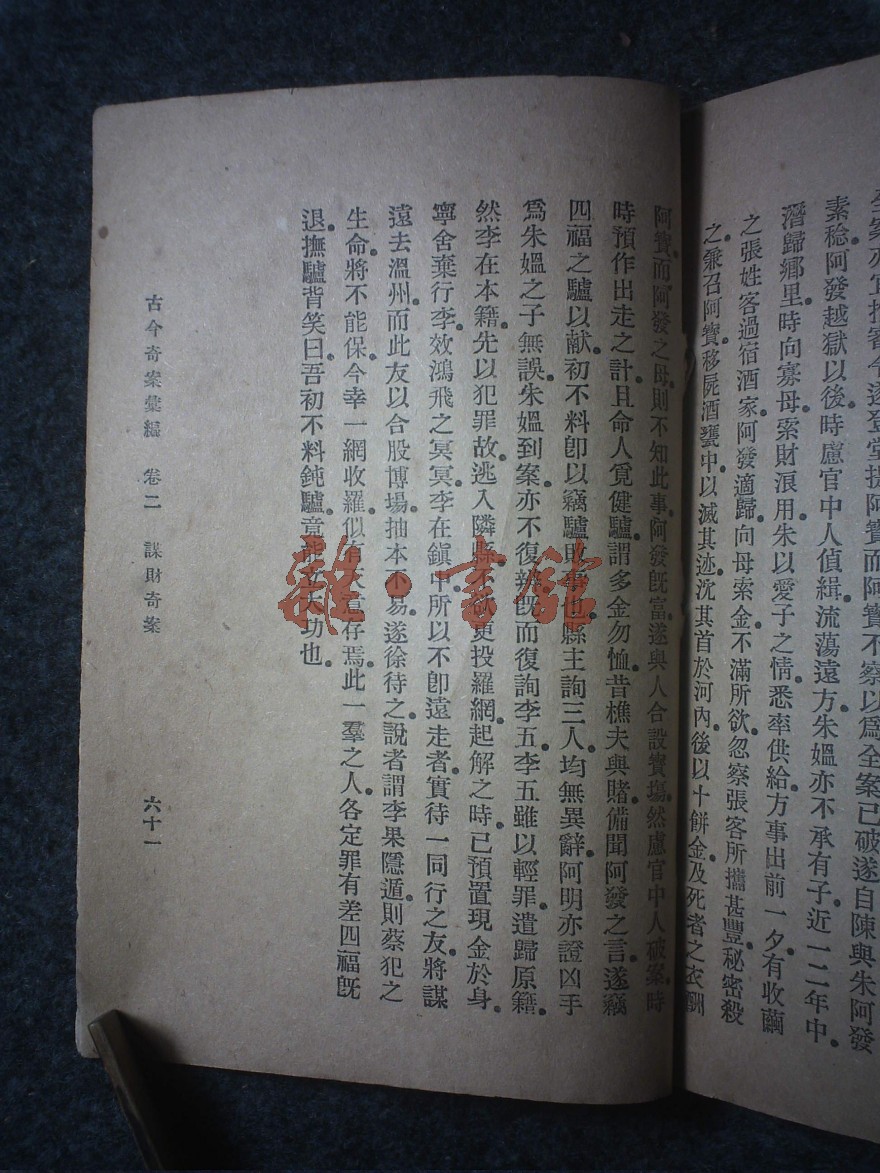 至案亦宜提審今遂登堂提阿寶而阿寶不察以爲全案已破遂自陳與朱阿發
素稔阿發越獄以後時慮官中人偵緝流蕩遠方朱媼亦不承有子近一二年中
潛歸鄉里時向寡母索財浪用朱以愛子之情悉率供給方事出前一夕有收繭
之張姓客過宿酒家阿發適歸向母索金不滿所欲忽察張客所攜甚豐秘密殺
之兼召阿寶移屍酒甕中以滅其迹沈其首於河內後以十餅金及死者之衣酬
阿寶而阿發之母則不知此事阿發旣富遂與人合設寶塲然慮官中人破案時
時預作出走之計且命人覓健驢謂多金勿恤昔樵夫與賭備聞阿發之言遂竊
四福之驢以献初不料卽以竊驢敗事也縣主詢三人均無異辭阿明亦證凶手
爲朱媼之子無誤朱媼到案亦不復辨旣而復詢李五李五雖以輕罪遣歸原籍
然李在本籍先以犯罪故逃入隣縣不欲更投羅網起解之時已預置現金於身
寧舍棄行李效鴻飛之冥冥李在鎭中所以不卽遠走者實待一同行之友將謀
遠去溫州而此友以合股博場抽本不易遂徐待之說者謂李果隱遁則蔡犯之
生命將不能保今幸一網收羅似有天意存焉此一羣之人各定罪有差四福旣
退撫驢背笑曰吾初不料鈍驢竟能立大功也
古今奇案彙編 卷二 謀財奇案 六十一
雜·書館